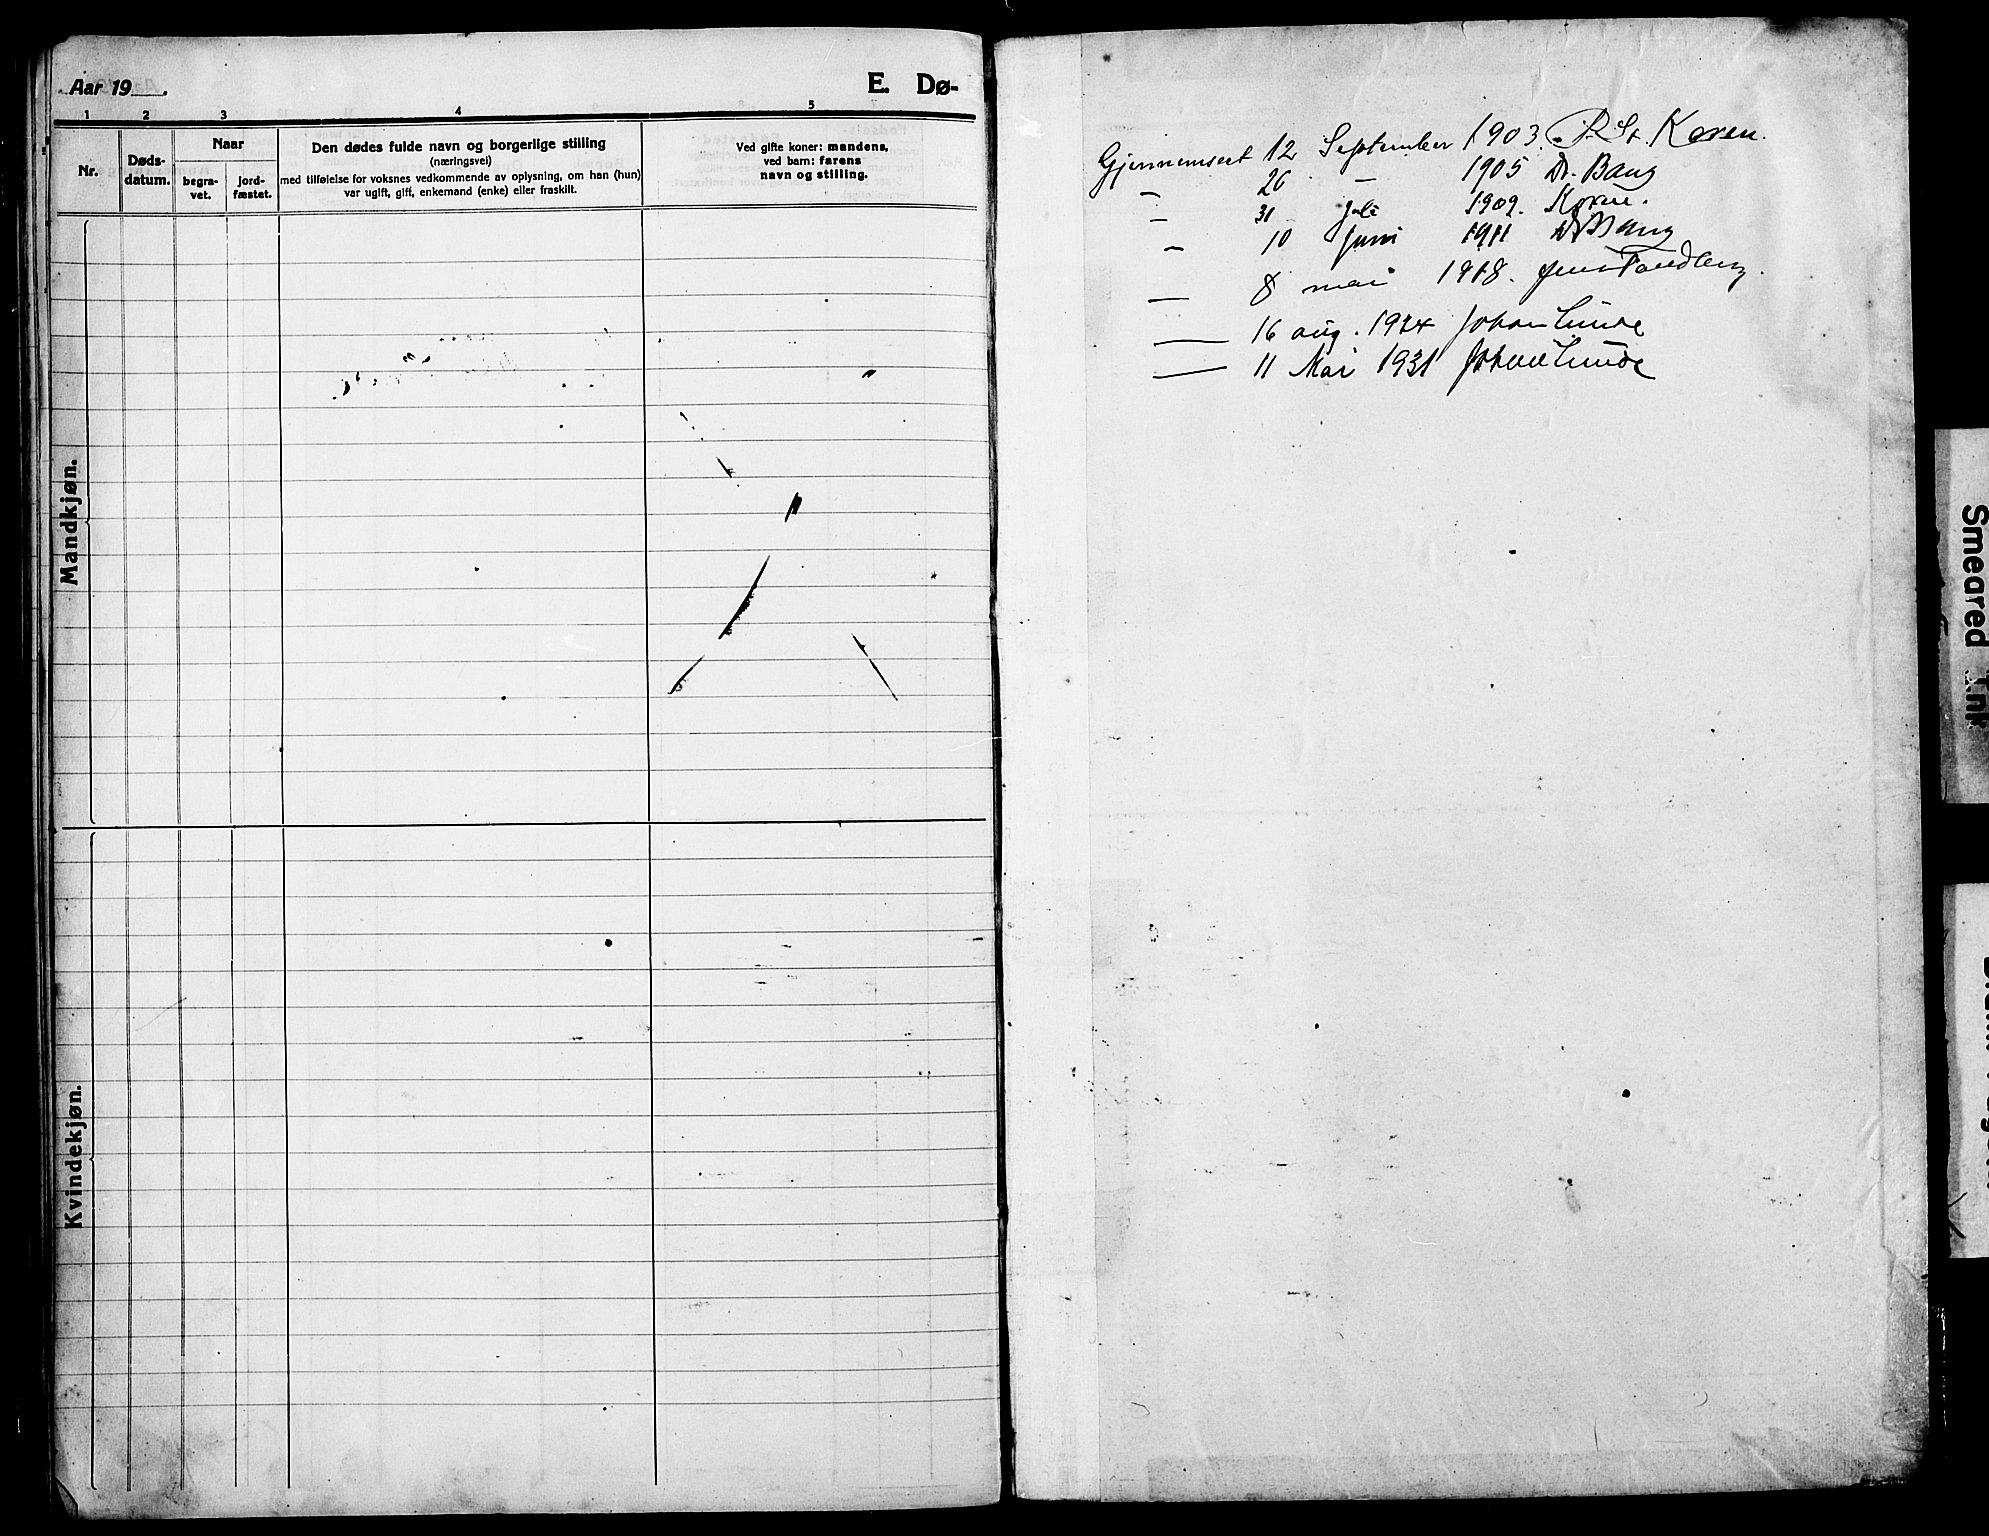 Aar 19 .
E. Dø-
1 2 3 4 5
Nr.
Døds-
datum.
Naar
begra-
vet.
jord-
fæstet.
Den dødes fulde navn og borgerlige stilling
(næringsvei)
med tilføielse for voksnes vedkommende av oplysning, om han (hun)
var ugift, gift, enkemand (enke) eller fraskilt.
Ved gifte koner: mandens,
ved barn: farens
navn og stilling.
Mandkjøn.
Kvindekjøn.
Gjennemseet 12 September 1903. Koren.
" 26 — 1905 Dr. Bang
" 31 Juli 1909. Koren.
" 10 Juni 1911 Bang
— 8 mai 1918. Jens Tandberg.
— 16 aug. 1924 Johan Lunde
— 11 Mai 1931 Johan Lunde
Smeared Ink